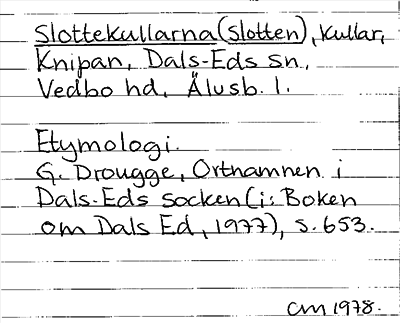 Slottekullarna (Slotten), kullar,
Knipan, Dals-Eds sn.,
Vedbo hd, Älvsb. l.
Etymologi.
G. Drougge, Ortnamnen i
Dals-Eds socken (i: Boken
om Dals Ed, 1977), s. 653.
CM 1978.